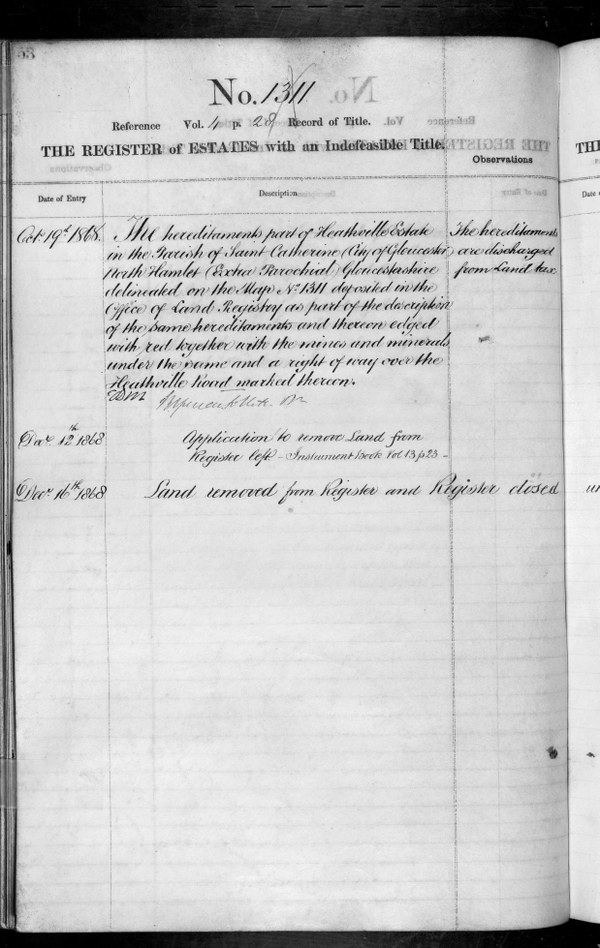 53
No. 1311
Reference Vol. 4 p. 28 Record of Title.
THE REGISTER of ESTATES with an Indefeasible Title.
Observations
Date of Entry
Description
Octr 19th 1868.
The hereditaments part of Heathville Estate
in the Parish of Saint Catherine (City of Gloucester)
North Hamlet (Extra Parochial) Gloucestershire
delineated on the Map No. 1311 deposited in the
Office of Land Registry as part of the description
of the same hereditaments and thereon edged
with red together with the mines and minerals
under the same and a right of way over the
Heathville Road marked thereon.
The hereditaments
are discharged
from Land tax
Decr. 12th 1868
Application to remove Land from
Register left - Instrument Book Vol 13 p 23 -
Decr. 16th 1868
Land removed from Register and Register closed